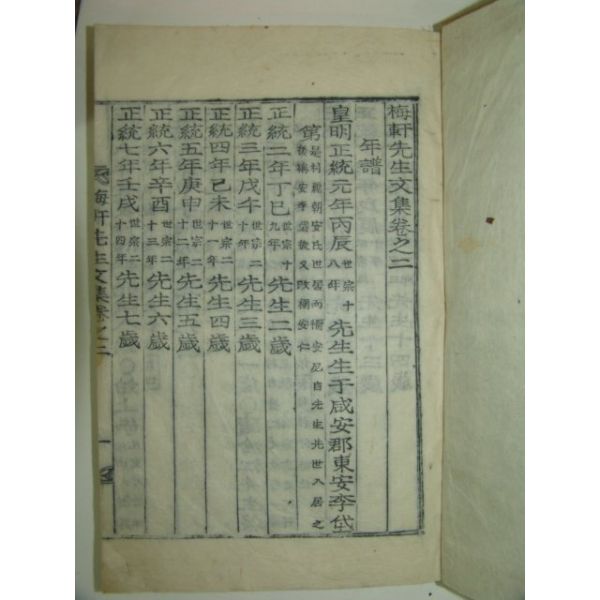 梅軒先生文集卷之二
年譜
皇明正統元年丙辰世宗十八年先生生于咸安郡東安李垈
第是村觀朝安氏世居而稱安尼自先生先世入居之
後稱安李垈後又改稱安仁
正統二年丁巳世宗十九年先生二歲
正統三年戊午世宗二十年先生三歲
正統四年己未世宗二十一年先生四歲
正統五年庚申世宗二十二年先生五歲
正統六年辛酉世宗二十三年先生六歲
正統七年壬戌世宗二十四年先生七歲
梅軒先生文集卷之二
一